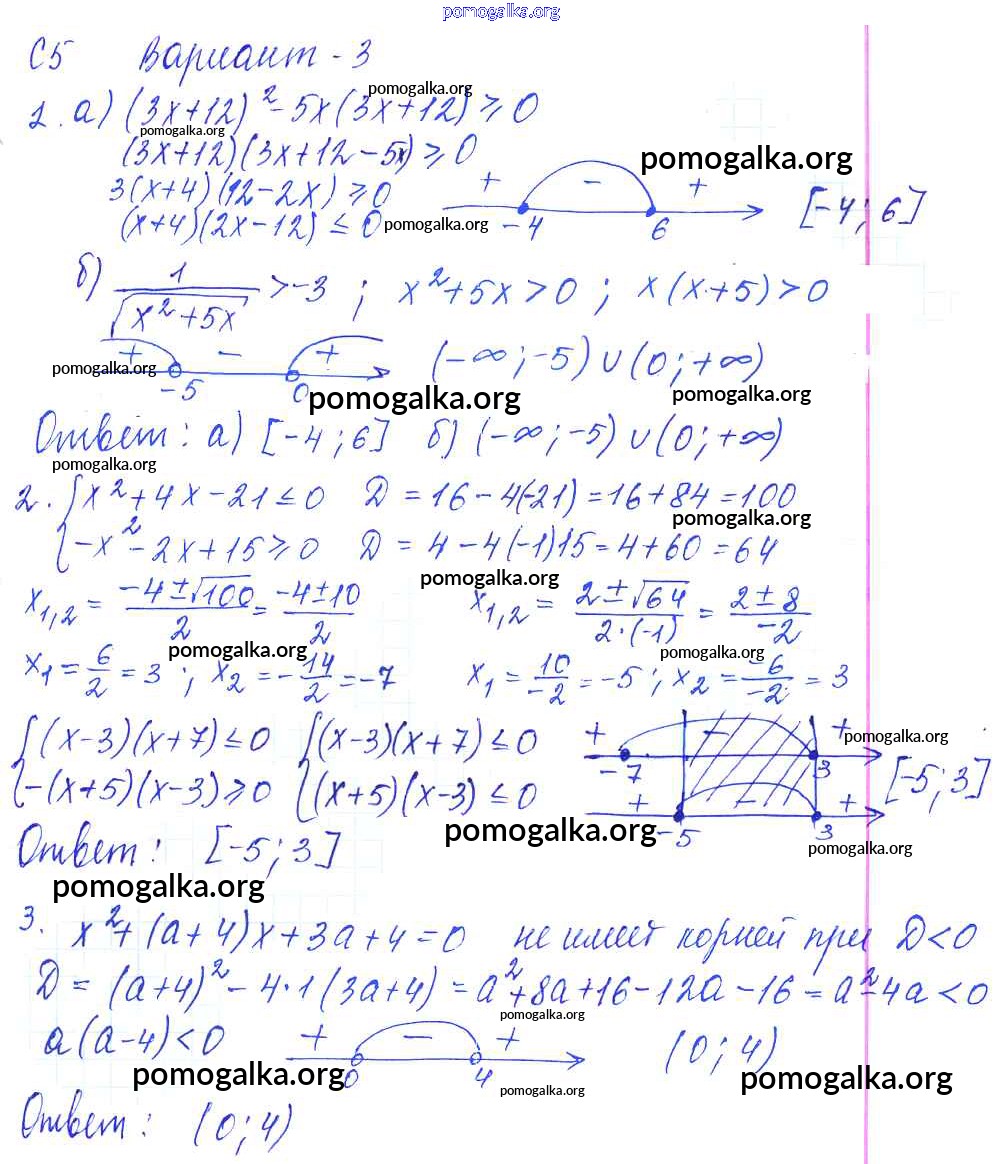 pomogalka.org
С5 Вариант - 3
1. а) (3x+12)² - 5x(3x+12) ≥ 0
pomogalka.org
pomogalka.org
(3x+12)(3x+12-5x) ≥ 0
pomogalka.org
3(x+4)(12-2x) ≥ 0
+ - +
-4 6
[-4; 6]
(x+4)(2x-12) ≤ 0
pomogalka.org
б) 1/√(x²+5x) > -3 ; x²+5x > 0 ; x(x+5) > 0
+ - +
-5 0
(-∞; -5) ∪ (0; +∞)
pomogalka.org
pomogalka.org
pomogalka.org
Ответ: а) [-4; 6] б) (-∞; -5) ∪ (0; +∞)
pomogalka.org
2. { x²+4x-21 ≤ 0 D = 16-4(-21) = 16+84 = 100
pomogalka.org
{ -x²-2x+15 ≥ 0 D = 4-4(-1)15 = 4+60 = 64
pomogalka.org
x₁,₂ = (-4±√100)/2 = (-4±10)/2 x₁,₂ = (2±√64)/(2·(-1)) = (2±8)/-2
pomogalka.org
pomogalka.org
x₁ = 6/2 = 3 ; x₂ = -14/2 = -7 x₁ = 10/-2 = -5 ; x₂ = -6/-2 = 3
{ (x-3)(x+7) ≤ 0 { (x-3)(x+7) ≤ 0
{ -(x+5)(x-3) ≥ 0 { (x+5)(x-3) ≤ 0
+ - +
pomogalka.org
-7 3
[-5; 3]
+ - +
-5 3
pomogalka.org
pomogalka.org
Ответ: [-5; 3]
pomogalka.org
3. x²+(a+4)x+3a+4=0 не имеет корней при D<0
D = (a+4)² - 4·1(3a+4) = a²+8a+16-12a-16 = a²-4a < 0
pomogalka.org
a(a-4) < 0
+ - +
0 4
(0; 4)
pomogalka.org
pomogalka.org
pomogalka.org
Ответ: (0; 4)